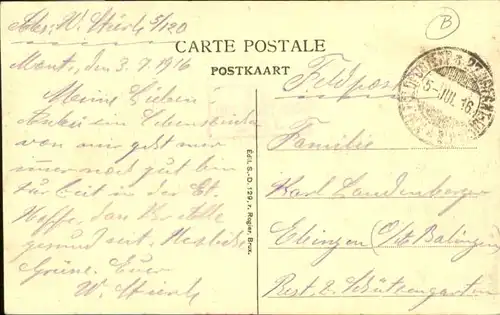 Abs. W. Stierle 5/120
CARTE POSTALE
POSTKAART
Feldpost
B
5-JUL.16.
Mont, den 3.7.1916
Meine Lieben!
Anbei ein Lebenszeichen
von mir geht mir
immer noch gut bin
zur Zeit in der Et.
Hoffe, dass Ihr alle
gesund seit. Herzliche
Grüsse. Euer
W. Stierle
Édit. S.-D. 129, r. Rogier, Brux.
Familie
Karl Landenberger
Ebingen O/A Balingen
Rest. z. Schützengarten